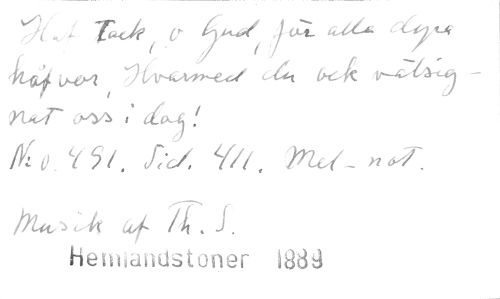 Haf Tack, o Gud, för alla dyra
håfvor, Hvarmed du ock välsig-
nat oss i dag!
N:o. 491. Sid. 411. Mel-not.
Musik af Th. S.
Hemlandstoner 1889